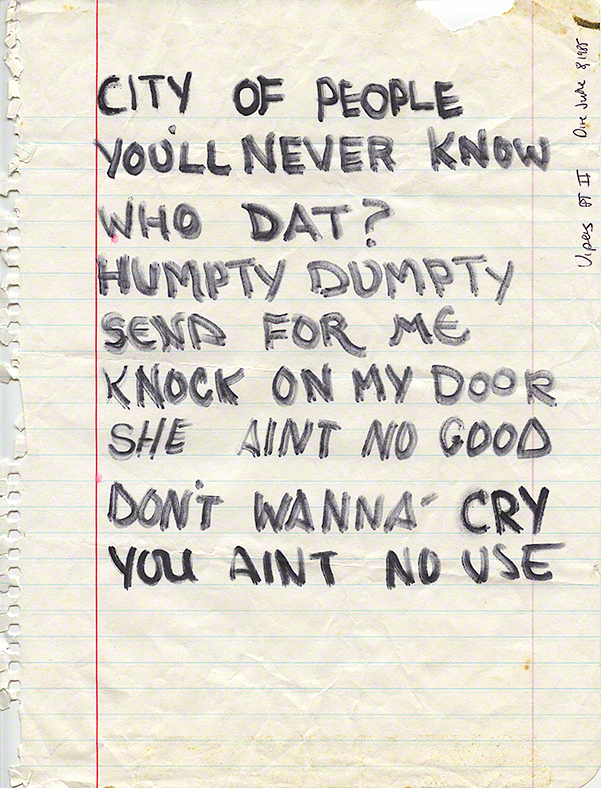 CITY OF PEOPLE
YOU'LL NEVER KNOW
WHO DAT?
HUMPTY DUMPTY
SEND FOR ME
KNOCK ON MY DOOR
SHE AINT NO GOOD
DON'T WANNA' CRY
YOU AINT NO USE
Vipers PT II Dire June 8, 1985